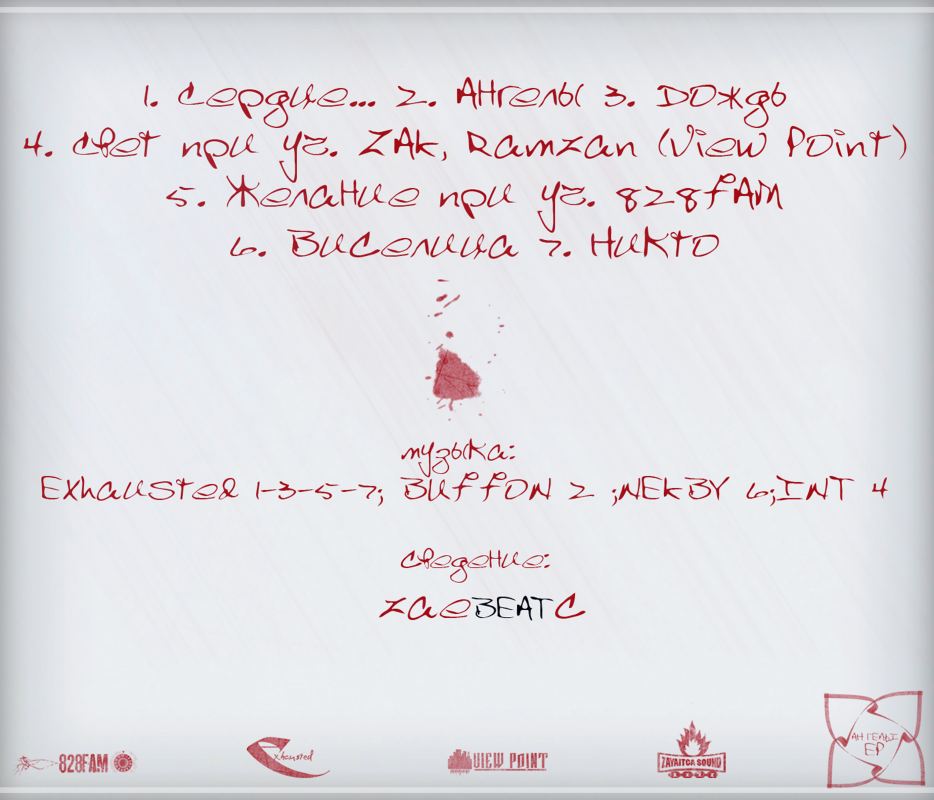 1. Сердце... 2. Ангелы 3. Дождь
4. Свет при уч. ZAk, Ramzan (View Point)
5. Желание при уч. 828fAM
6. Виселица 7. Никто
музыка:
Exhausted 1-3-5-7; BUffON 2 ;NEkBY 6;INT 4
сведение:
zaeBEATC
828FAM
Exhausted
VIEW POINT
ZAYAITCA SOUND
АНГЕЛЫ
EP